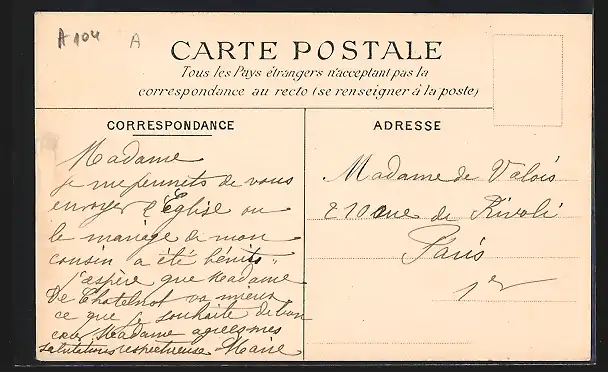 A 104 A
CARTE POSTALE
Tous les Pays étrangers n'acceptant pas la
correspondance au recto (se renseigner à la poste)
CORRESPONDANCE
Madame
je me permets de vous
envoyer l'Eglise ou
le mariage de mon
cousin a été bénits
j'aspère que Madame
De Chatelnot va mieux
ce que je souhaite de bon
cœur Madame agrées mes
salutations respectueuse Marie
ADRESSE
Madame de Valois
210 rue de Rivoli
Paris
1er